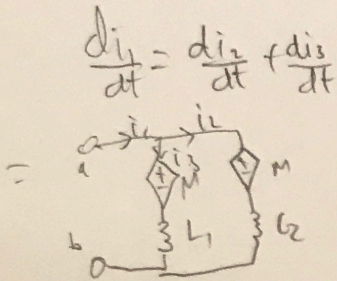 di₁/dt = di₂/dt + di₃/dt
i₁ i₂
=
a
i₃
+
-
M
+
-
M
L₁
L₂
b